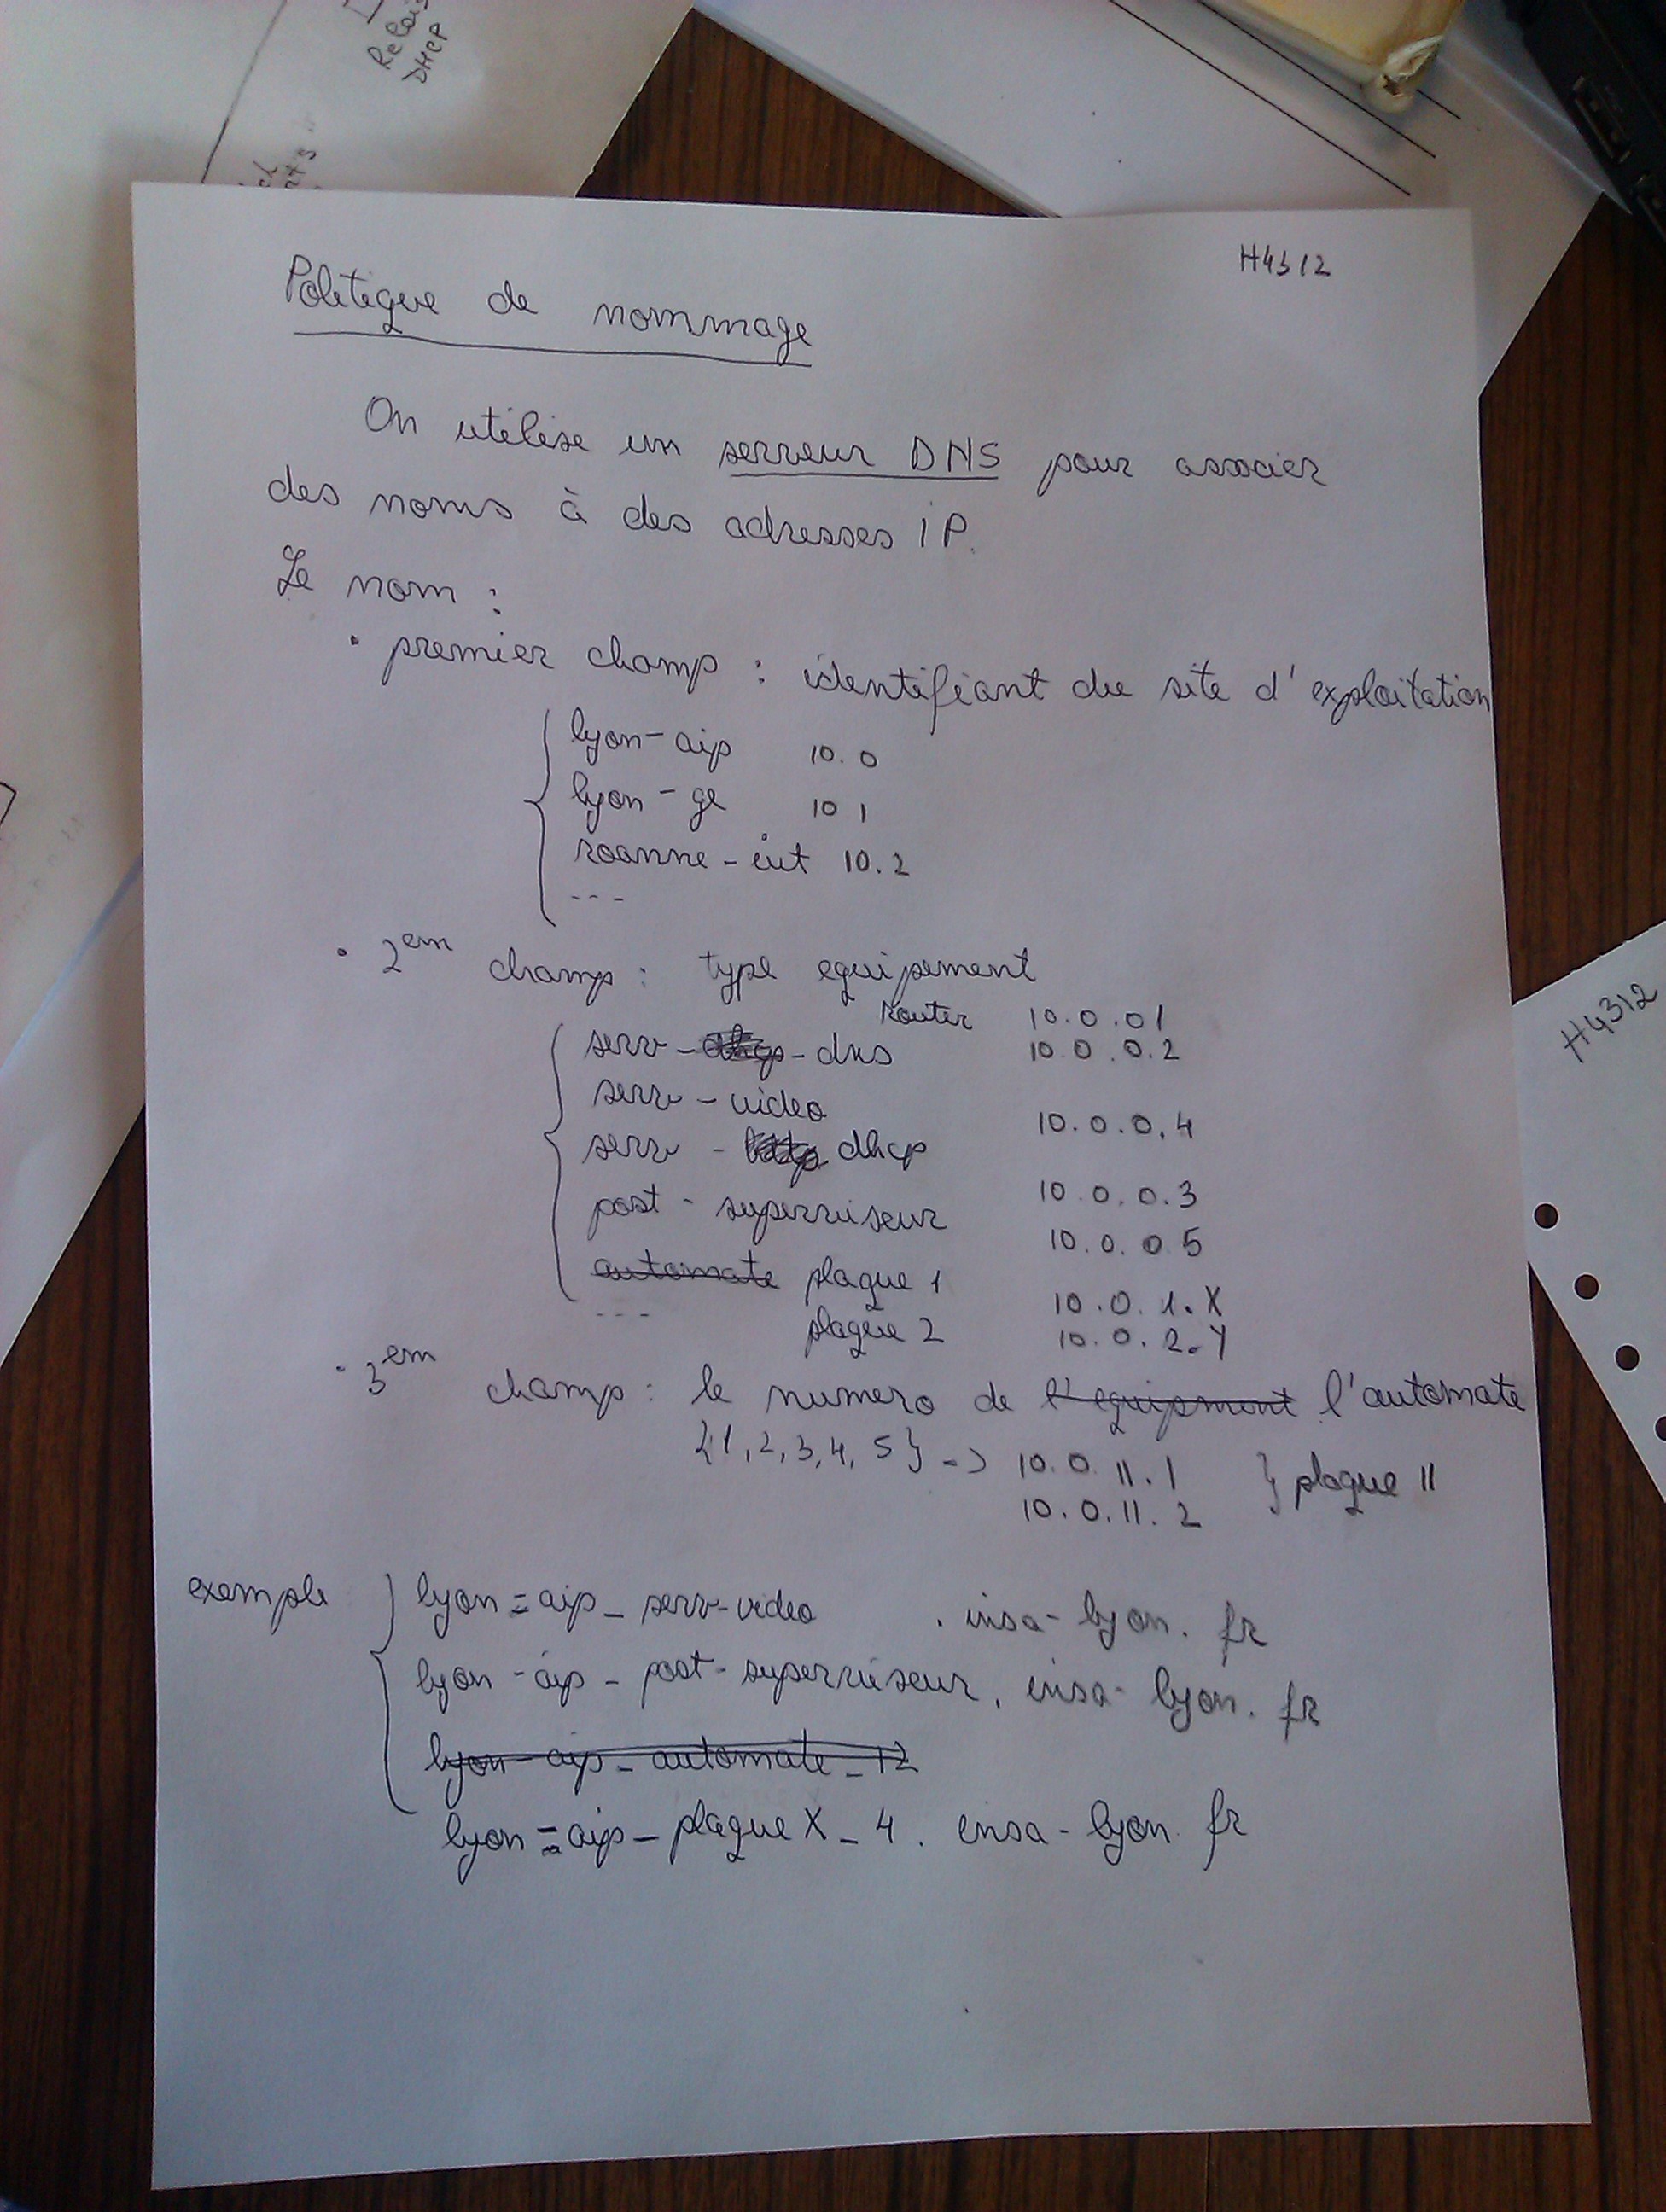 Relais
DHCP
H4312
Politique de nommage
On utilise un serveur DNS pour associer
des noms à des adresses IP.
Le nom :
• premier champ : identifiant du site d'exploitation
lyon-aip 10.0
lyon-ge 10 1
roanne-iut 10.2
---
• 2em champ : type equipement
router 10.0.01
serv--dns 10 0 0.2
serv-video 10.0.0.4
serv-dhcp 10.0.0.3
post-superviseur 10.0.0 5
automate plaque 1 10.0.1.X
--- plaque 2 10.0.2.Y
• 3em champ : le numero de l'equipment l'automate
{1,2,3,4,5} -> 10.0.11.1 } plaque 11
10.0.11.2
exemple lyon=aip_serv-video .insa-lyon.fr
lyon-aip_post-superviseur.insa-lyon.fr
lyon-aip_automate_12
lyon=aip_plaqueX_4.insa-lyon fr
H4312